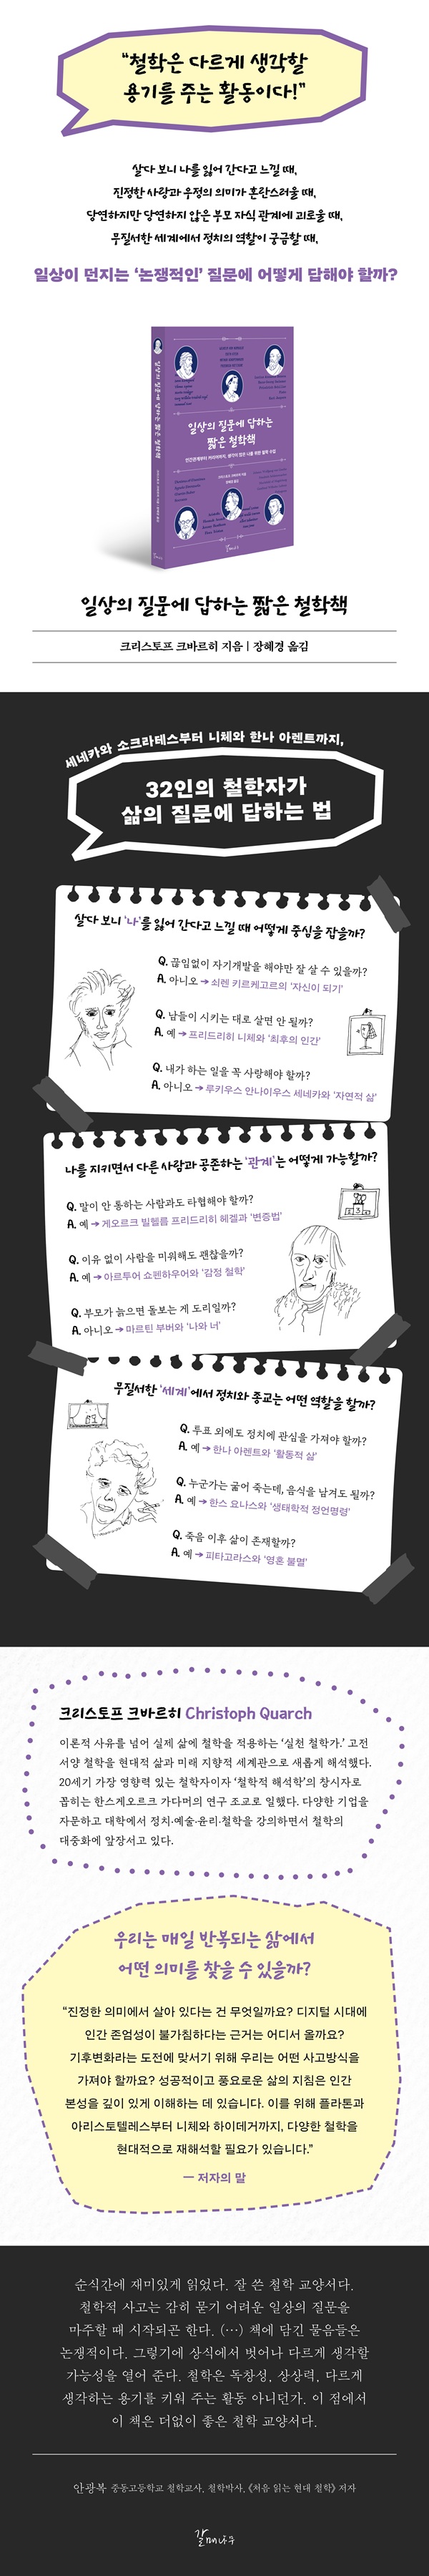 “철학은 다르게 생각할
용기를 주는 활동이다!”
살다 보니 나를 잃어 간다고 느낄 때,
진정한 사랑과 우정의 의미가 혼란스러울 때,
당연하지만 당연하지 않은 부모 자식 관계에 괴로울 때,
무질서한 세계에서 정치의 역할이 궁금할 때,
일상이 던지는 ‘논쟁적인’ 질문에 어떻게 답해야 할까?
일상의 질문에 답하는
짧은 철학책
일상의 질문에 답하는 짧은 철학책
일상의 질문에 답하는 짧은 철학책
크리스토프 크바르히 지음 | 장혜경 옮김
세네카와 소크라테스부터 니체와 한나 아렌트까지,
32인의 철학자가
삶의 질문에 답하는 법
살다 보니 ‘나’를 잃어 간다고 느낄 때 어떻게 중심을 잡을까?
Q. 끊임없이 자기개발을 해야만 잘 살 수 있을까?
A. 아니오 ➔ 쇠렌 키르케고르의 ‘자신이 되기’
Q. 남들이 시키는 대로 살면 안 될까?
A. 예 ➔ 프리드리히 니체와 ‘최후의 인간’
Q. 내가 하는 일을 꼭 사랑해야 할까?
A. 아니오 ➔ 루키우스 안나이우스 세네카와 ‘자연적 삶’
나를 지키면서 다른 사람과 공존하는 ‘관계’는 어떻게 가능할까?
Q. 말이 안 통하는 사람과도 타협해야 할까?
A. 예 ➔ 게오르크 빌헬름 프리드리히 헤겔과 ‘변증법’
Q. 이유 없이 사람을 미워해도 괜찮을까?
A. 예 ➔ 아르투어 쇼펜하우어와 ‘감정 철학’
Q. 부모가 늙으면 돌보는 게 도리일까?
A. 아니오 ➔ 마르틴 부버와 ‘나와 너’
무질서한 ‘세계’에서 정치와 종교는 어떤 역할을 할까?
Q. 투표 외에도 정치에 관심을 가져야 할까?
A. 예 ➔ 한나 아렌트와 ‘활동적 삶’
Q. 누군가는 굶어 죽는데, 음식을 남겨도 될까?
A. 예 ➔ 한스 요나스와 ‘생태학적 정언명령’
Q. 죽음 이후 삶이 존재할까?
A. 예 ➔ 피타고라스와 ‘영혼 불멸’
크리스토프 크바르히 Christoph Quarch
이론적 사유를 넘어 실제 삶에 철학을 적용하는 ‘실천 철학가.’ 고전
서양 철학을 현대적 삶과 미래 지향적 세계관으로 새롭게 해석했다.
20세기 가장 영향력 있는 철학자이자 ‘철학적 해석학’의 창시자로
꼽히는 한스게오르크 가다머의 연구 조교로 일했다. 다양한 기업을
자문하고 대학에서 정치·예술·윤리·철학을 강의하면서 철학의
대중화에 앞장서고 있다.
우리는 매일 반복되는 삶에서
어떤 의미를 찾을 수 있을까?
“진정한 의미에서 살아 있다는 건 무엇일까요? 디지털 시대에
인간 존엄성이 불가침하다는 근거는 어디서 올까요?
기후변화라는 도전에 맞서기 위해 우리는 어떤 사고방식을
가져야 할까요? 성공적이고 풍요로운 삶의 지침은 인간
본성을 깊이 있게 이해하는 데 있습니다. 이를 위해 플라톤과
아리스토텔레스부터 니체와 하이데거까지, 다양한 철학을
현대적으로 재해석할 필요가 있습니다.”
— 저자의 말
순식간에 재미있게 읽었다. 잘 쓴 철학 교양서다.
철학적 사고는 감히 묻기 어려운 일상의 질문을
마주할 때 시작되곤 한다. (…) 책에 담긴 물음들은
논쟁적이다. 그렇기에 상식에서 벗어나 다르게 생각할
가능성을 열어 준다. 철학은 독창성, 상상력, 다르게
생각하는 용기를 키워 주는 활동 아니던가. 이 점에서
이 책은 더없이 좋은 철학 교양서다.
안광복 중동고등학교 철학교사, 철학박사, 《처음 읽는 현대 철학》 저자
갈매나무